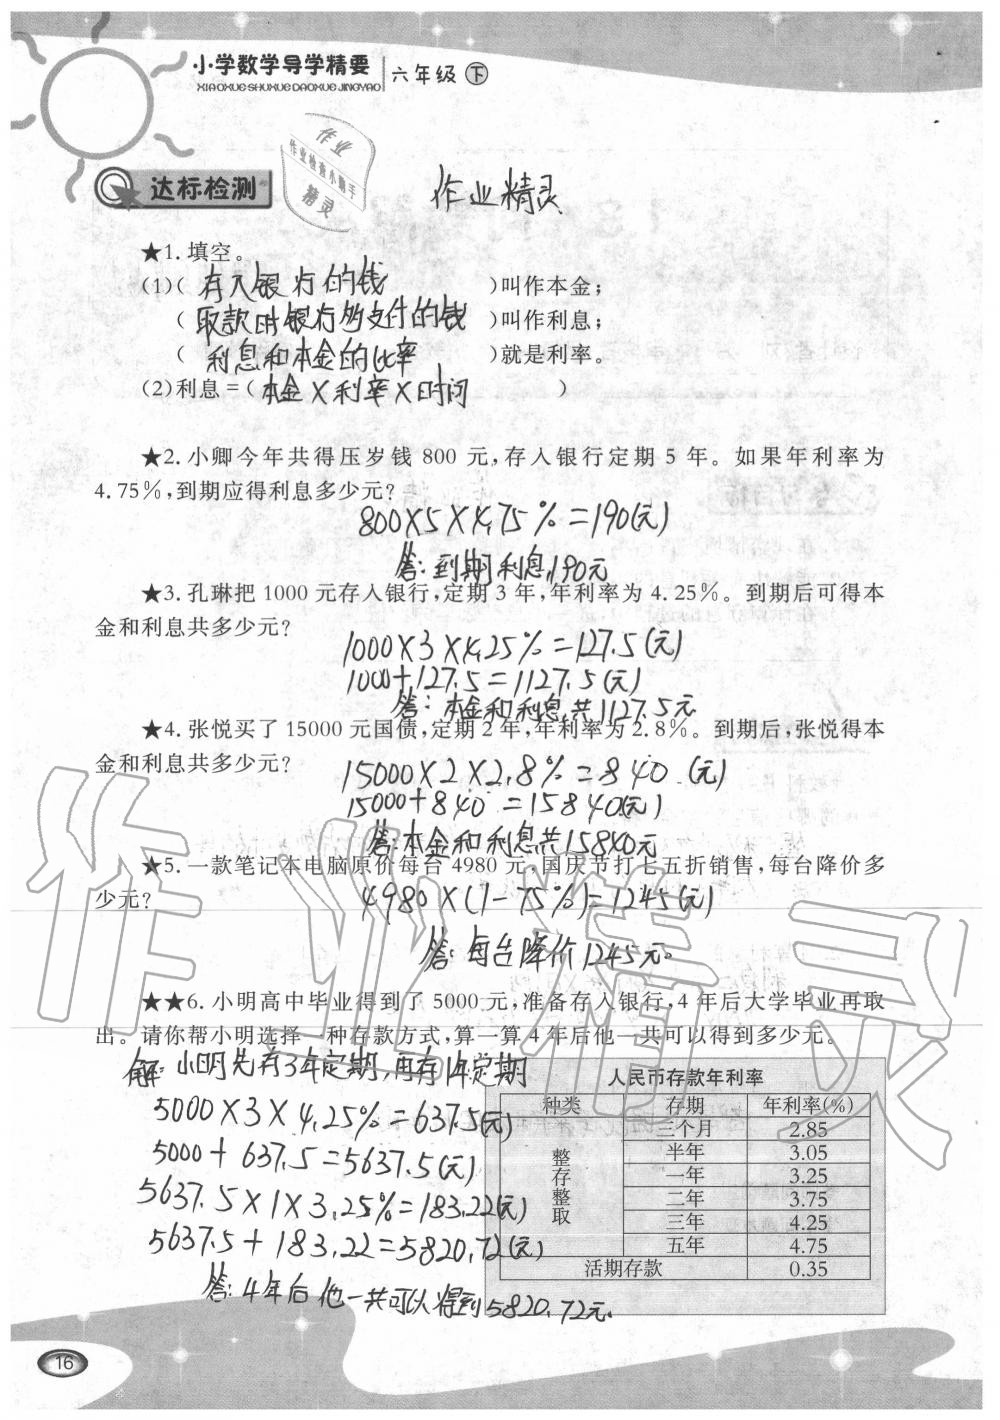 小学数学导学精要
XIAOXUESHUXUEDAOXUEJINGYAO
六年级 下
作业
作业检查小助手
精灵
达标检测
作业精灵
★1. 填空。
(1)( 存入银行的钱 )叫作本金;
( 取款时银行多支付的钱 )叫作利息;
( 利息和本金的比率 )就是利率。
(2)利息=( 本金×利率×时间 )
★2. 小卿今年共得压岁钱 800 元,存入银行定期 5 年。如果年利率为
4.75%,到期应得利息多少元?
800×5×4.75%=190(元)
答:到期利息190元
★3. 孔琳把 1000 元存入银行,定期 3 年,年利率为 4.25%。到期后可得本
金和利息共多少元?
1000×3×4.25%=127.5(元)
1000+127.5=1127.5(元)
答:本金和利息共1127.5元.
★4. 张悦买了 15000 元国债,定期 2 年,年利率为 2.8%。到期后,张悦得本
金和利息共多少元?
15000×2×2.8%=840(元)
15000+840=15840(元)
答:本金和利息共15840元
★5. 一款笔记本电脑原价每台 4980 元,国庆节打七五折销售,每台降价多
少元?
4980×(1-75%)=1245(元)
答:每台降价1245元。
★★6. 小明高中毕业得到了 5000 元,准备存入银行,4 年后大学毕业再取
出。请你帮小明选择一种存款方式,算一算 4 年后他一共可以得到多少元。
解:小明先存3年定期,再存1年定期
5000×3×4.25%=637.5(元)
5000+637.5=5637.5(元)
5637.5×1×3.25%=183.22(元)
5637.5+183.22=5820.72(元)
答:4年后他一共可以得到5820.72元.
人民币存款年利率
种类 存期 年利率(%)
整存整取 三个月 2.85
半年 3.05
一年 3.25
二年 3.75
三年 4.25
五年 4.75
活期存款 0.35
作业精灵
16